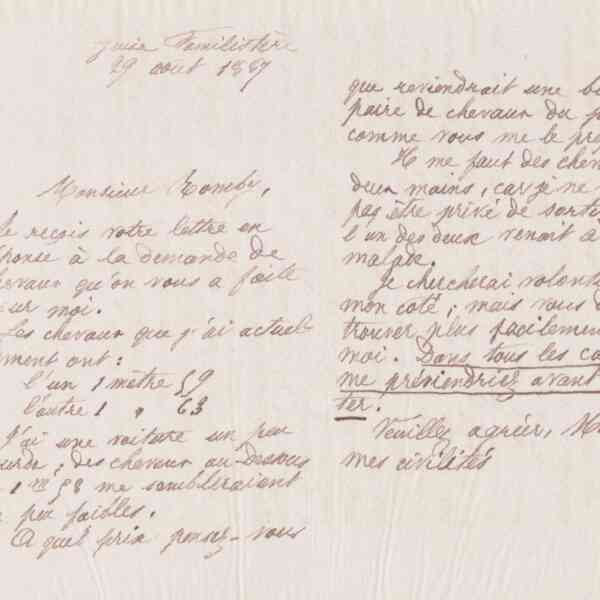 Guise Familistère
29 août 1887
Monsieur Tombe,
Je reçois votre lettre en
réponse à la demande de
chevaux qu'on vous a faite
pour moi.
Les chevaux que j'ai actuel-
lement ont :
l'un 1 mètre 59
l'autre 1 " 63
J'ai une voiture un peu
lourde ; des chevaux au-dessous
1 m 58 me sembleraient
peu faibles.
A quel prix pensez-vous
que reviendrait une
paire de chevaux du
comme vous me le
Il me faut des
deux mains, car je ne
pas être privé de
l'un des deux venait à
malade.
Je chercherai
mon coté ; mais vous
trouver plus facilement
moi. Dans tous les
me préviendriez avant
ter.
Veuillez agréer,
mes civilités